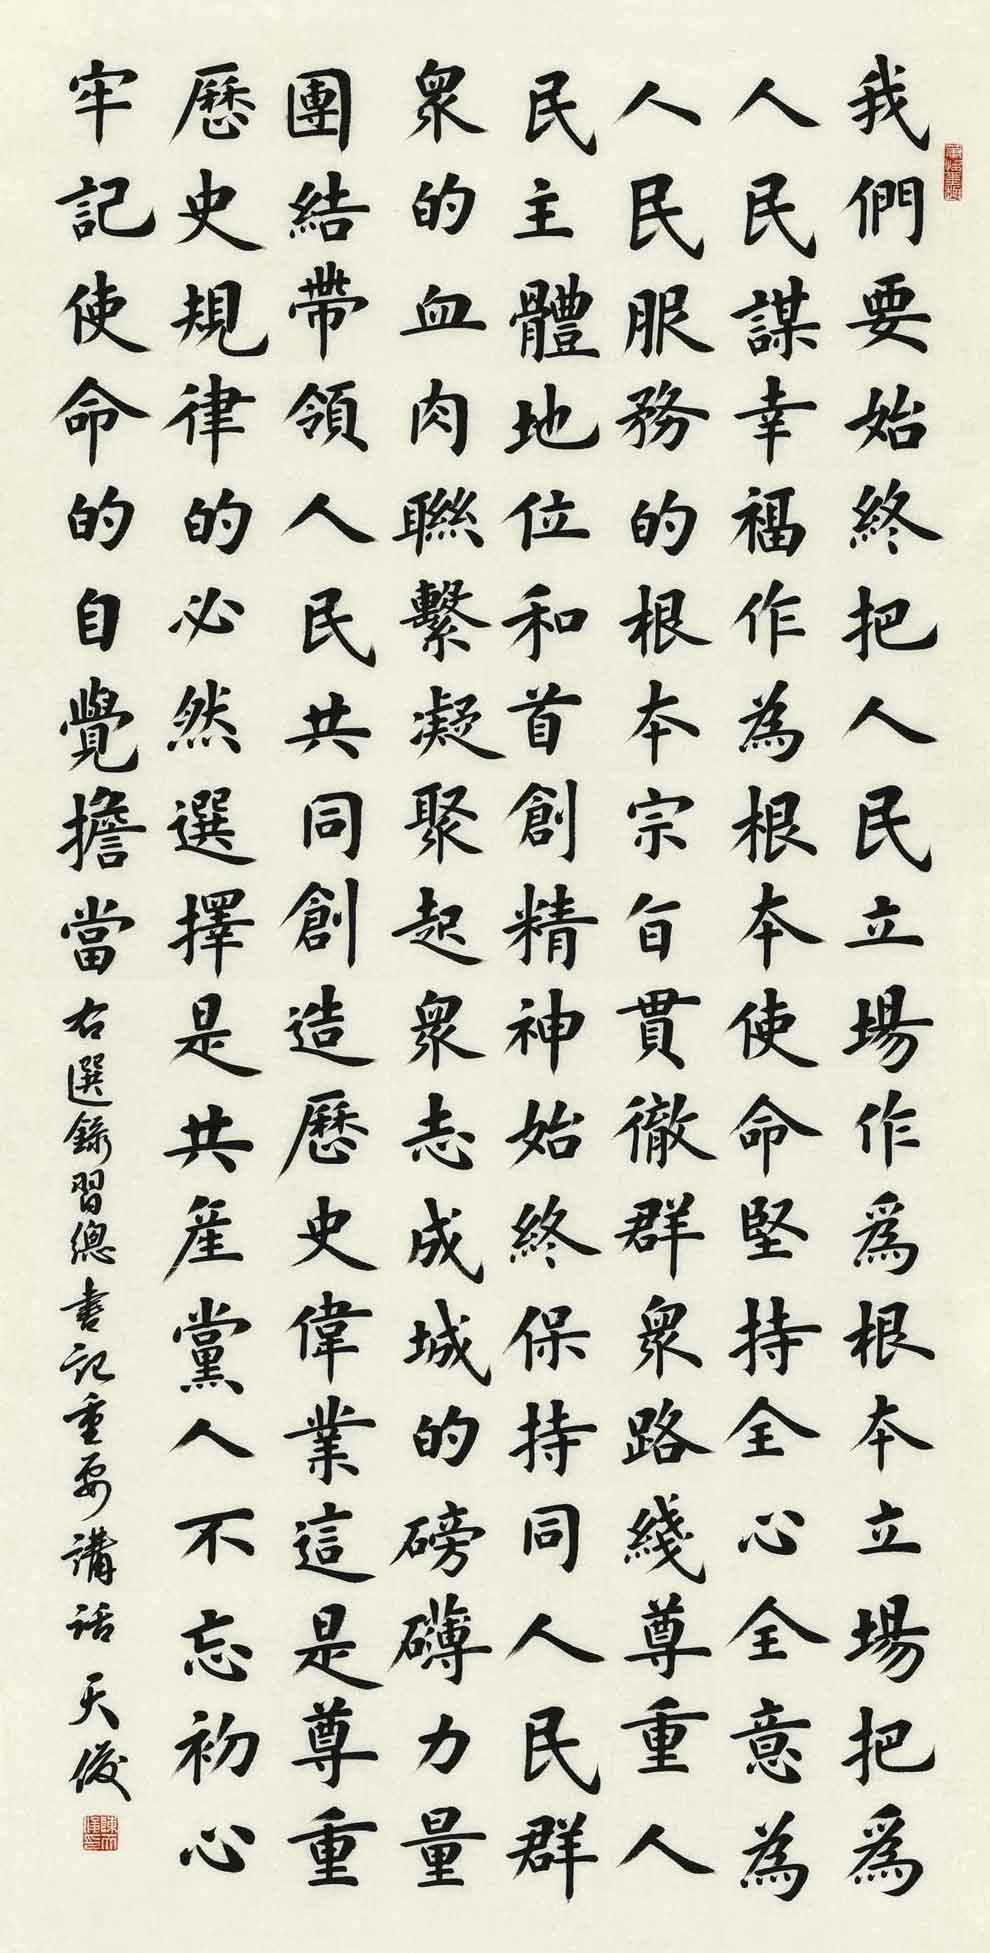 我們要始終把人民立場作爲根本立場把爲
人民謀幸福作為根本使命堅持全心全意為
人民服務的根本宗旨貫徹群眾路綫尊重人
民主體地位和首創精神始終保持同人民群
眾的血肉聯繫凝聚起眾志成城的磅礴力量
團結帶領人民共同創造歷史偉業這是尊重
歷史規律的必然選擇是共產黨人不忘初心
牢記使命的自覺擔當 右選錄習總書記重要講話 天俊